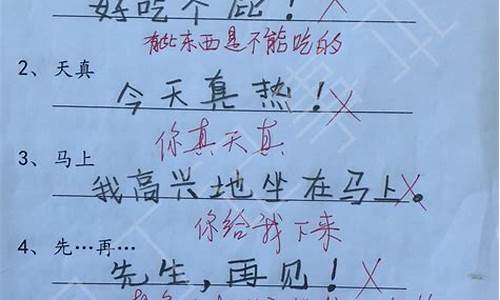 好吃个屁！
有些东西是不能吃的
2、天真
今天真热！
你真天真
3、马上
我高兴地坐在马上。
你给我下来
4、先…再…
先生，再见！